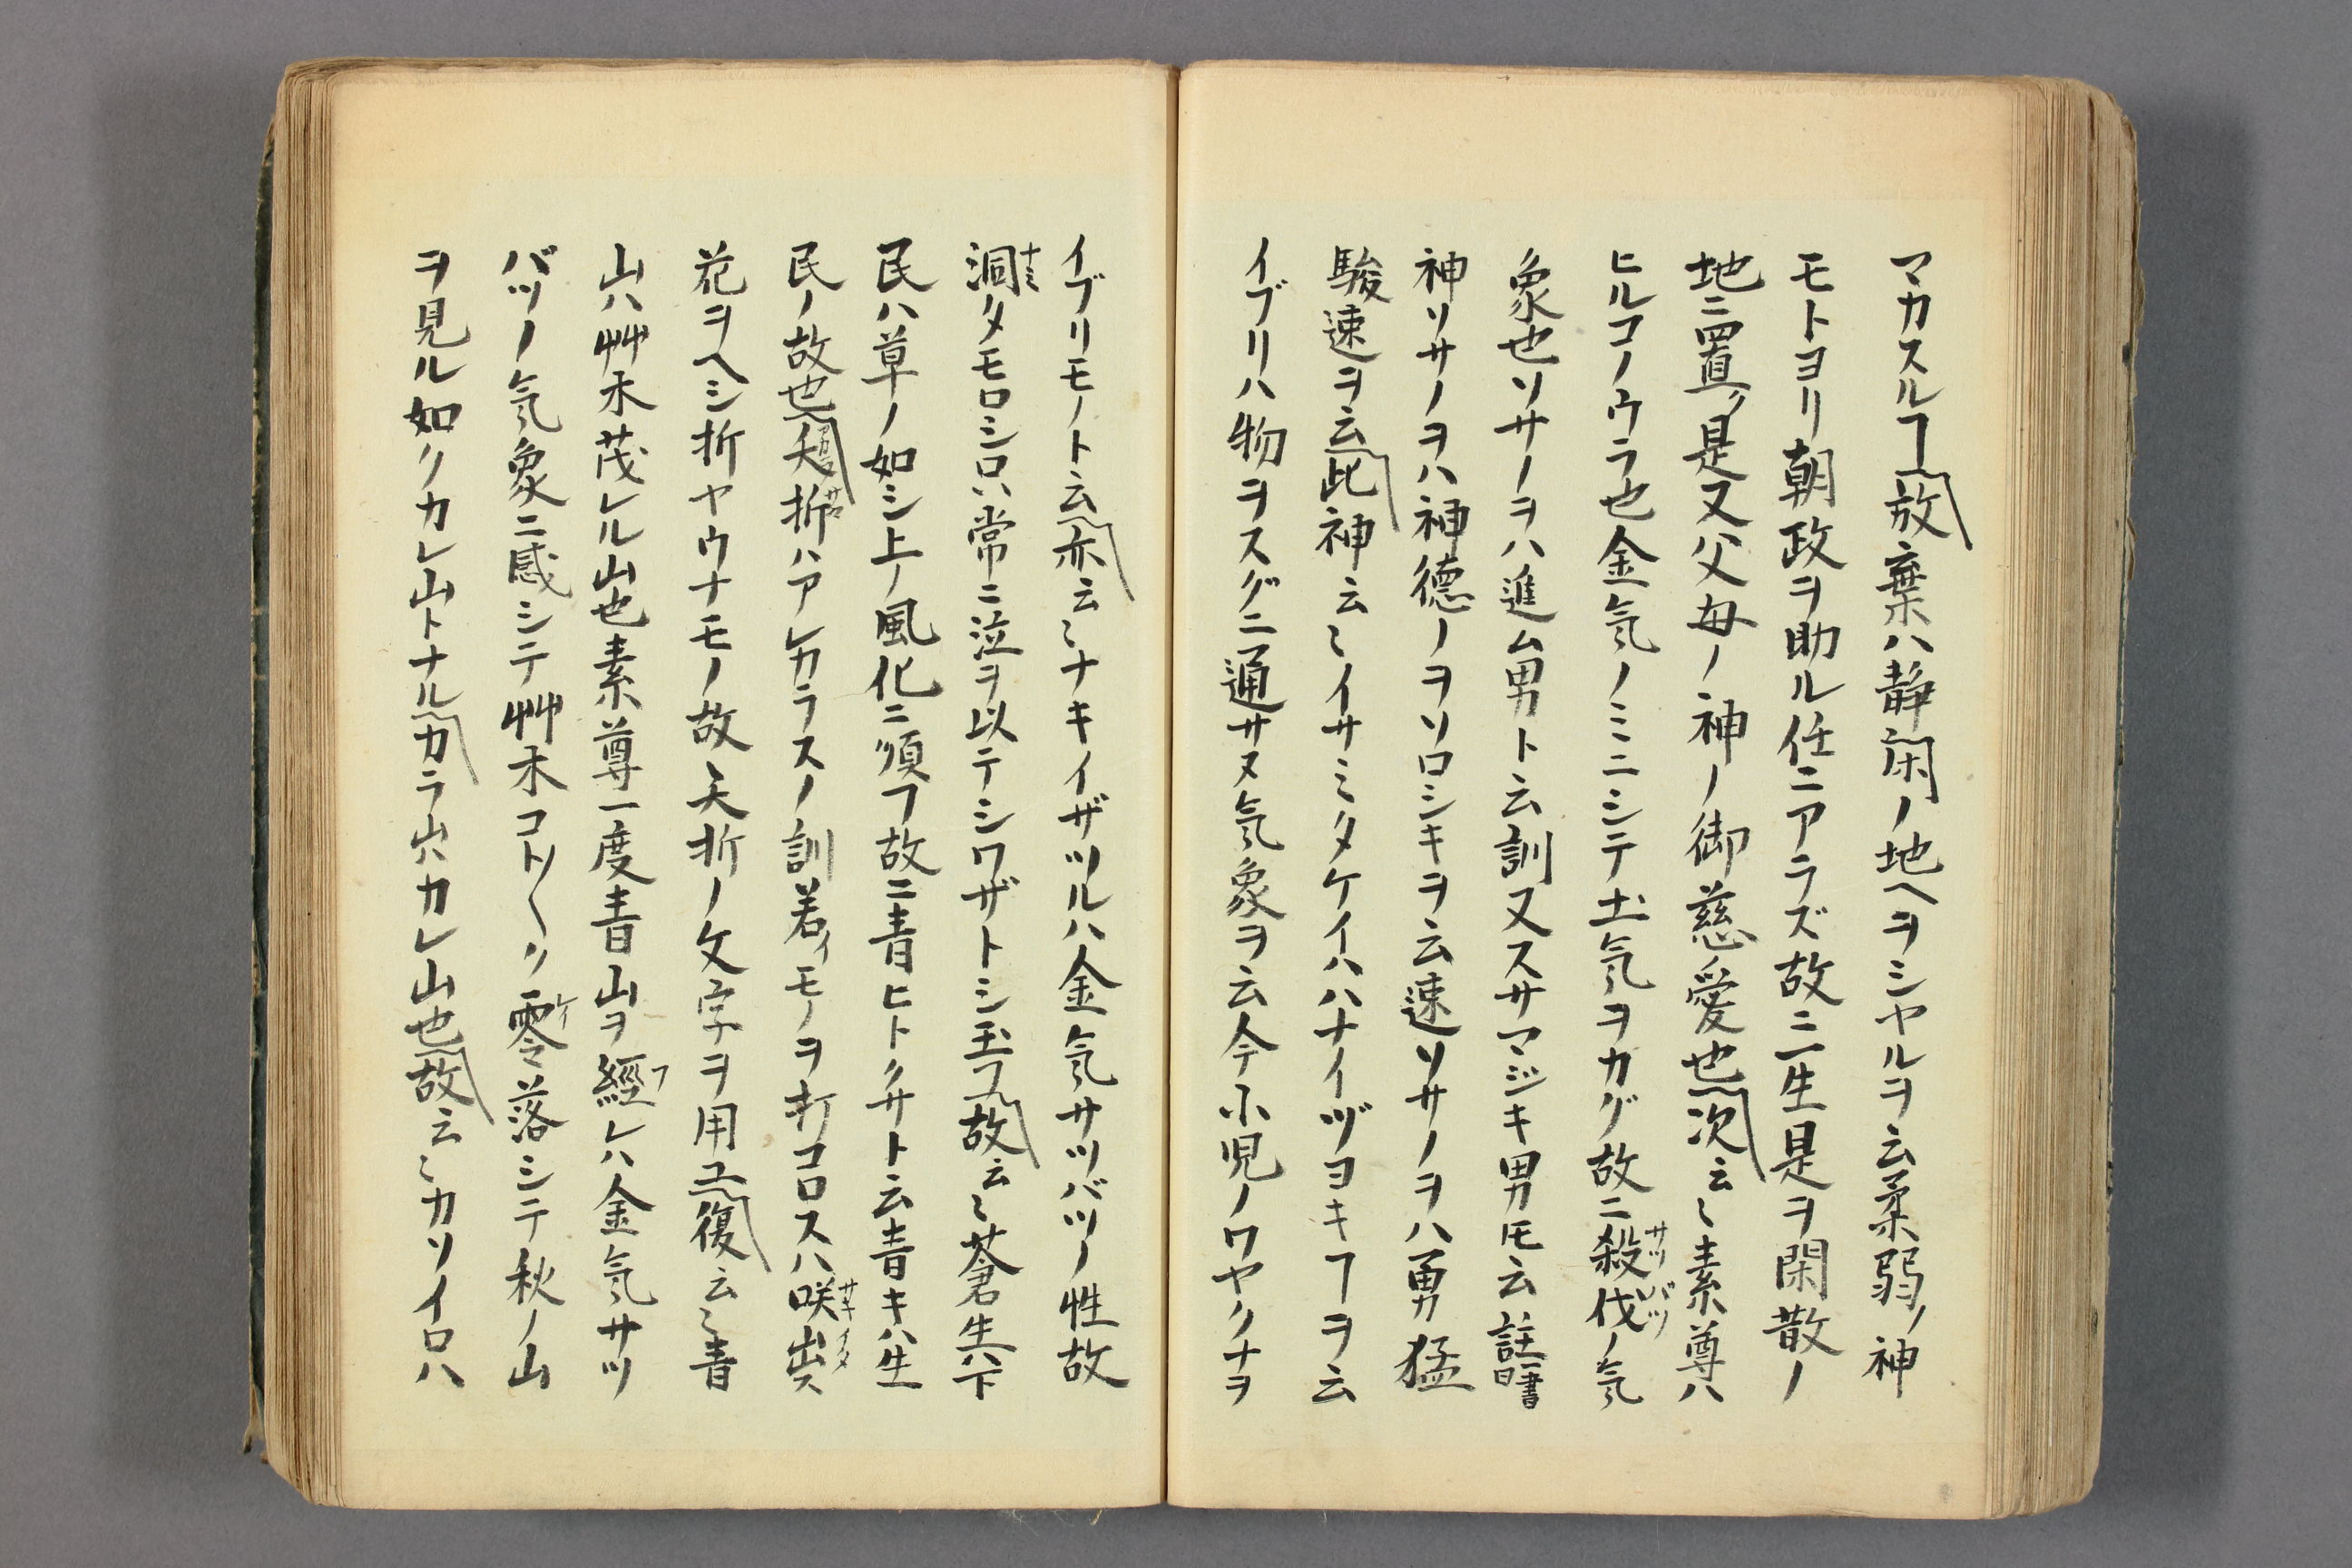 マカスルヿ放棄ハ静閑ノ地ヘヲシヤルヲ云柔弱ノ神
モトヨリ朝政ヲ助ル任ニアラズ故ニ生是ヲ閑散ノ
地ニ置ク是又父母ノ神ノ御慈愛也次云〻素尊ハ
ヒルコノウラ也金気ノミニシテ土気ヲカグ故ニ殺伐サツバツノ気
象也ソサノヲハ進ム男ト云訓又スサマジキ男トモ云註一書曰
神ソサノヲハ神徳ノヲソロシキヲ云速ソサノヲハ勇猛
駿速ヲ云此神云〻イサミタケイハハナイヅヨキヿヲ云
イブリハ物ヲスグニ通サヌ気象ヲ云今小児ノワヤクナヲ
イブリモノト云亦云〻ナキイザツルハ金気サツバツノ性故
洞ナミタメモロシ只常ニ泣ヲ以テシワザトシ玉フ故云〻蒼生ハ下
民ハ草ノ如シ上ノ風化ニ須フ故ニ青ヒトクサト云青キハ生
民ノ故也夭折ハアレカラスノ訓若イモノヲ打コロスハ咲出サキイタス
花ヲヘシ折ヤウナモノ故夭折ノ文字ヲ用ユ復云〻青
山ハ艸木茂レル山也素尊一度青山ヲ經フレハ金気サツ
バツノ気象ニ感シテ艸木コト〱ク零ケイ落シテ秋ノ山
ヲ見ル如クカレ山トナルカラ山ハカレ山也故云〻カソイロハ